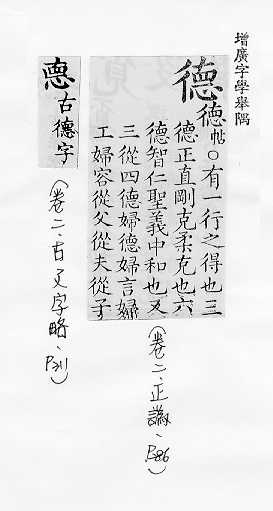 增廣字學舉隅
德
德帖○有一行之得也三
德正直剛克柔克也六
德智仁聖義中和也又
三從四德婦德婦言婦
工婦容從父從夫從子
(卷二、正譌、P.86)
悳
古德字
(卷二、古文字略、)